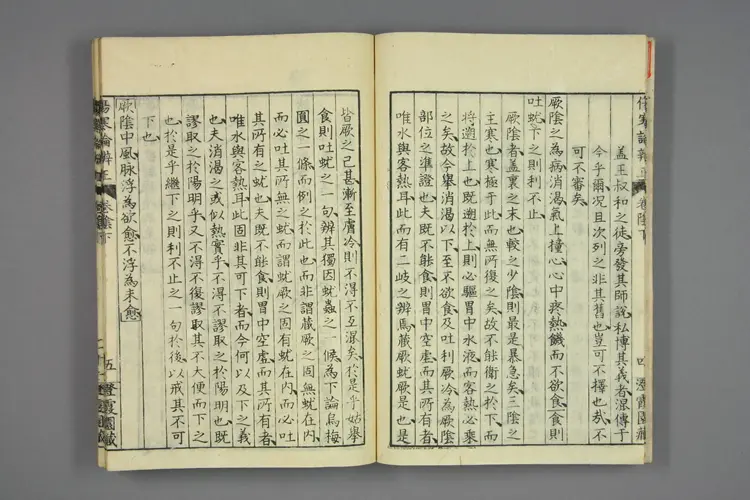 傷寒論辨正 卷陰下
蓋王叔和之徒旁發其師說私博其義者混傳于
今乎爾況且次列之非其舊也豈可不擇也哉不
可不審矣
厥陰之為病消渴氣上撞心心中疼熱饑而不欲食食則
吐蚘下之利不止
厥陰者蓋裏之末也較之少陰則最是暴急矣三陰之
主寒也寒極于此而無所復之矣故不能衛之於下而
將遡於上也既遡於上則必驅胃中水液而客熱必乘
之矣故今舉消渴以下至不欲食及吐利厥冷為厥陰
部位之準證也夫既不能食則胃中空虛而其所有者
唯水與客熱耳此而有二岐之辨焉藏厥蚘厥是也是
皆厥之已甚漸至膚冷則不得不互混矣於是乎姑舉
食則吐蚘之一句辨其獨因蚘蟲之一候為下論烏梅
圓之一條而例之於此也而非謂藏厥之固無蚘在內
而必吐其所無之蚘而謂蚘厥之因有蚘在內而必吐
其所有之蚘也夫既不能食則胃中空虛而其所有者
唯水與客熱耳此固非其可下者而今何以及下之義
也夫消渴之或似熱實乎不得不謬取之於陽明也既
謬取之於陽明乎又不得不復謬取其不大便而下之
也於是乎繼下之則利不止之一句於後以戒其不可
下也
厥陰中風脉浮為欲愈不浮為未愈
傷寒論辨正 卷陰下